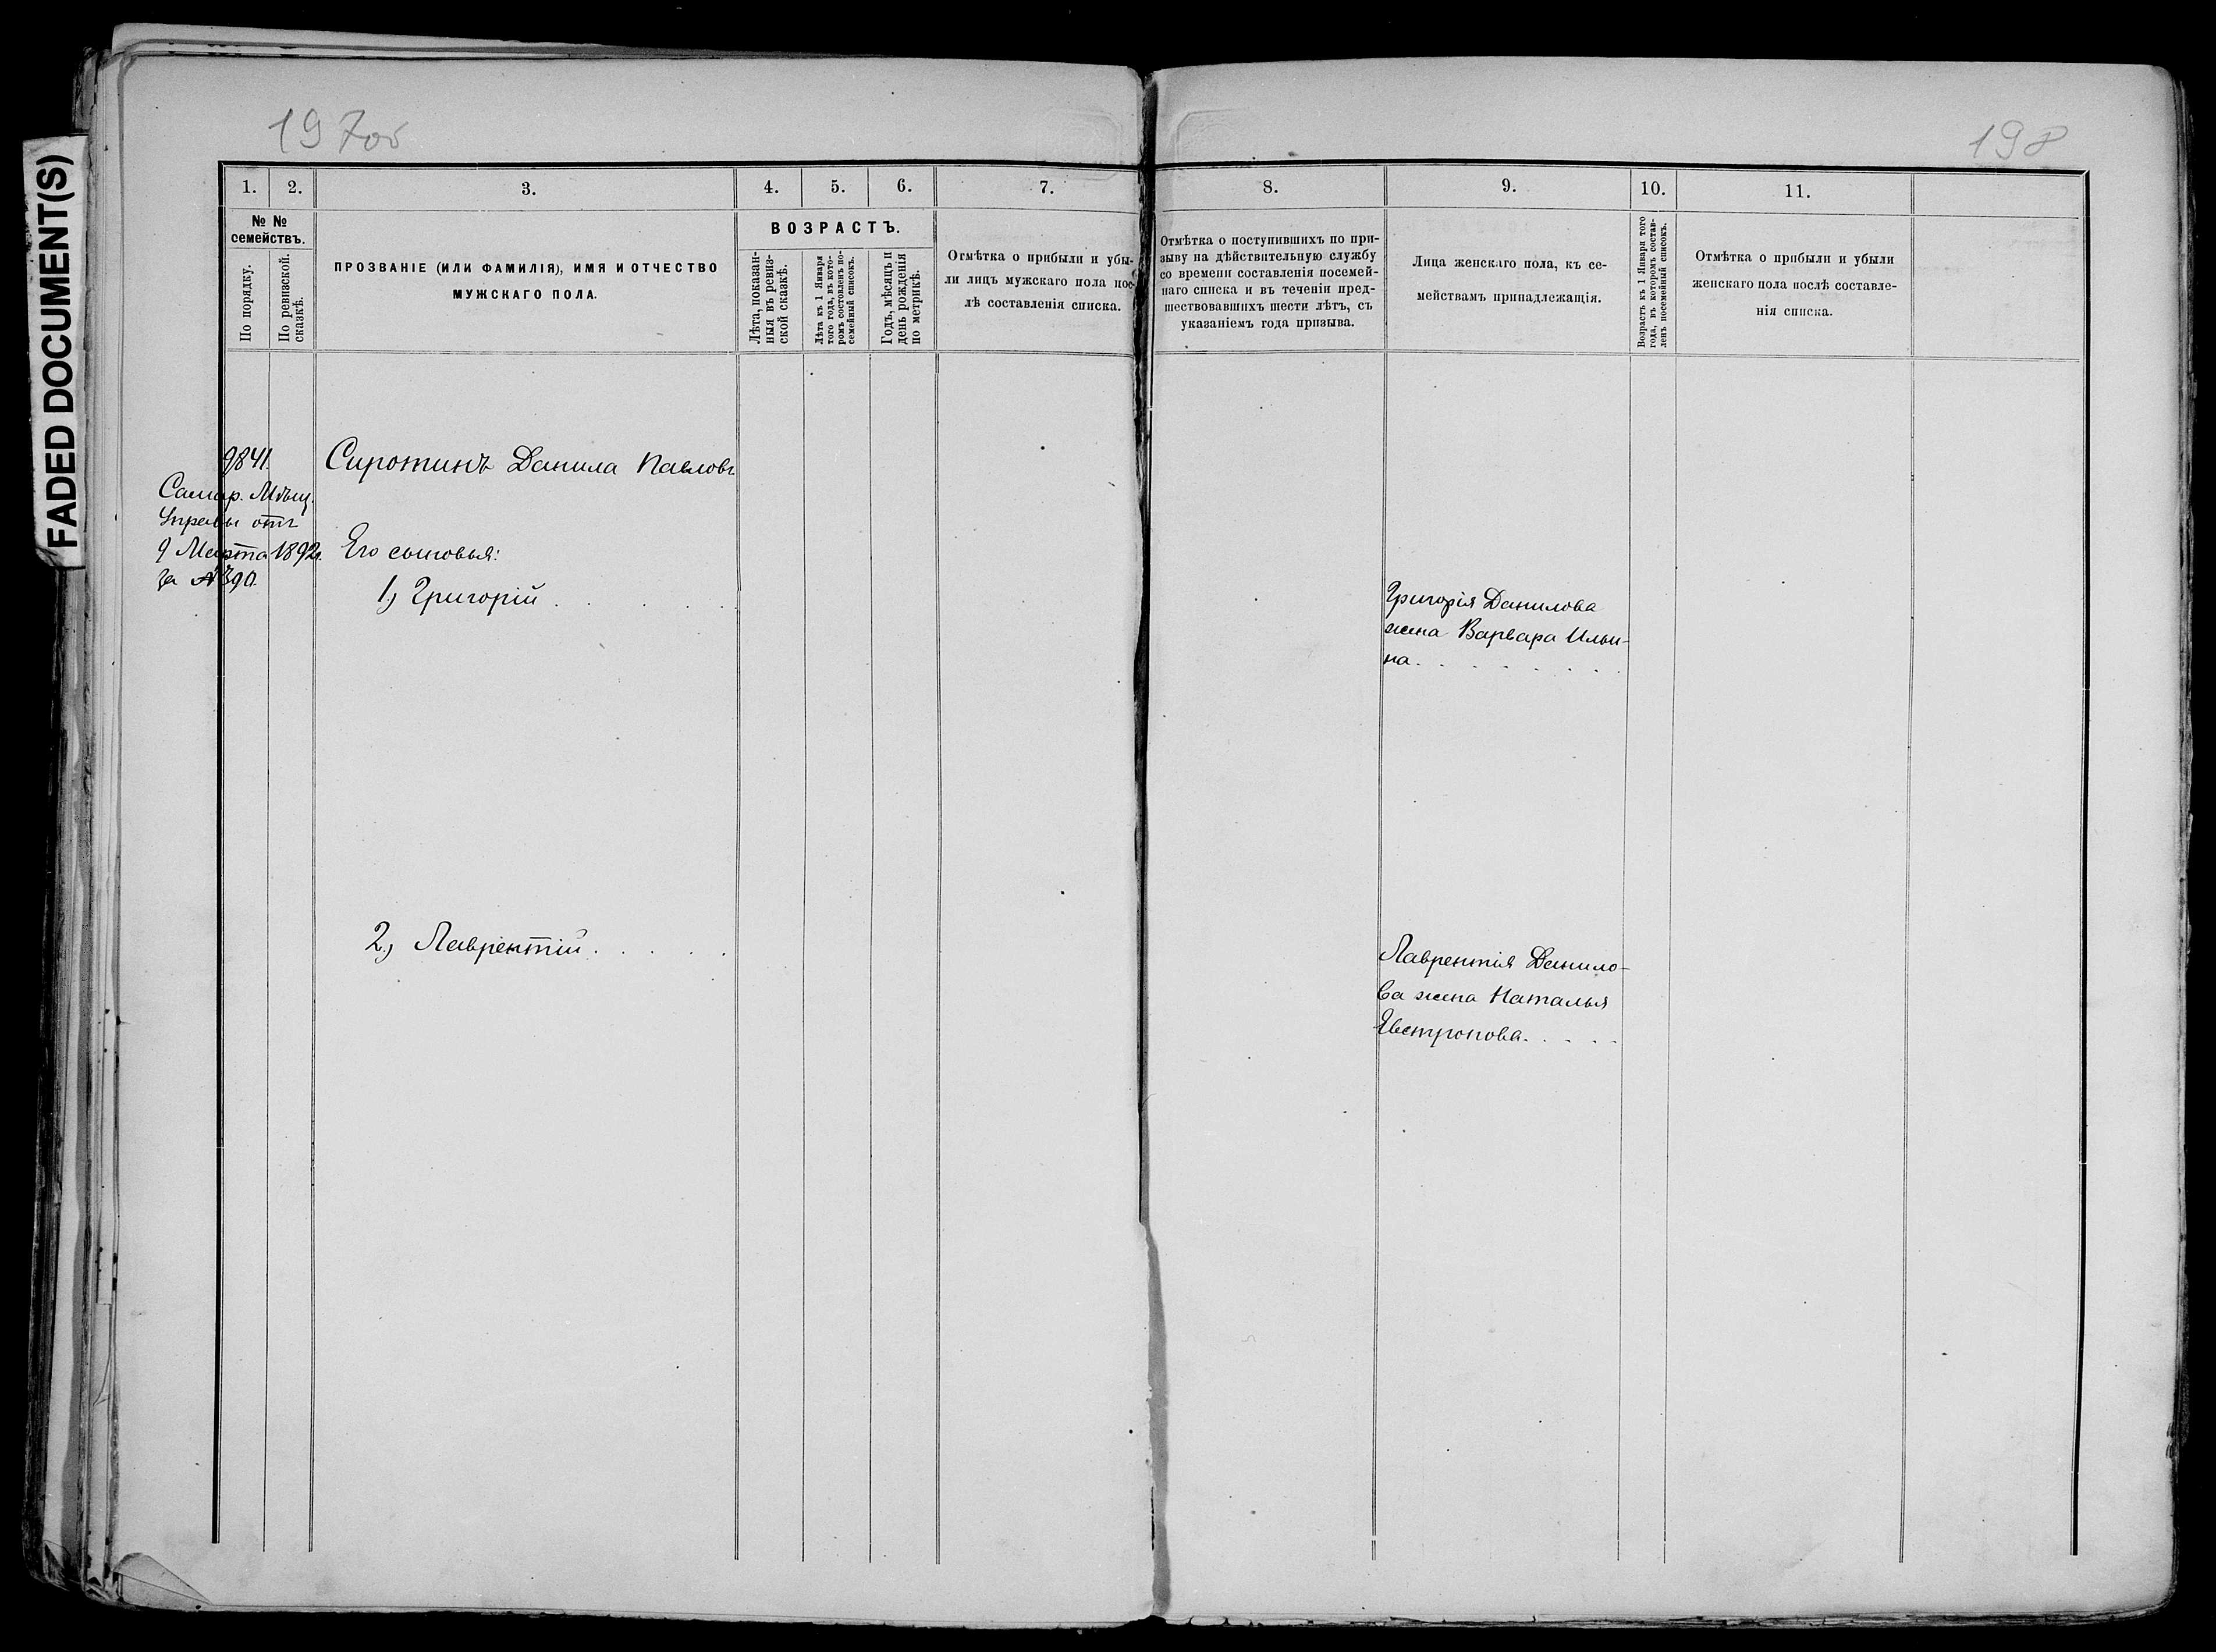 FADED DOCUMENT(S)
197об
198
1. 2. 3. 4. 5. 6. 7. 8. 9. 10. 11.
№ №
семействъ.
По порядку.
По ревизской.
сказкѣ.
ПРОЗВАНІЕ (ИЛИ ФАМИЛІЯ), ИМЯ И ОТЧЕСТВО
МУЖСКАГО ПОЛА.
ВОЗРАСТЪ.
Лѣта, показан-
ныя въ ревиз-
ской сказкѣ.
Лѣта къ 1 Января
того года, въ кото-
ромъ составленъ по-
семейный списокъ.
Годъ, мѣсяцъ и
день рожденія
по метрикѣ.
Отмѣтка о прибыли и убы-
ли лицъ мужскаго пола пос-
лѣ составленія списка.
Отмѣтка о поступившихъ по при-
зыву на дѣйствительную службу
со времени составленія посемей-
наго списка и въ теченіи пред-
шествовавшихъ шести лѣтъ, съ
указаніемъ года призыва.
Лица женскаго пола, къ се-
мействамъ принадлежащія.
Возрастъ къ 1 Января того
года, въ которомъ состав-
ленъ посемейный списокъ.
Отмѣтка о прибыли и убыли
женскаго пола послѣ составле-
нія списка.
9841.
Самар. Мѣщ.
Управы отъ
9 Марта 1892г.
за № 390.
Сиротинъ Данила Павловъ
Его сыновья:
1) Григорій . . . .
2) Лаврентій . . . . .
Григорія Данилова
жена Варвара Ильи-
на . . . . . . . .
Лаврентія Данило-
ва жена Наталья
Евстропова . . . . .